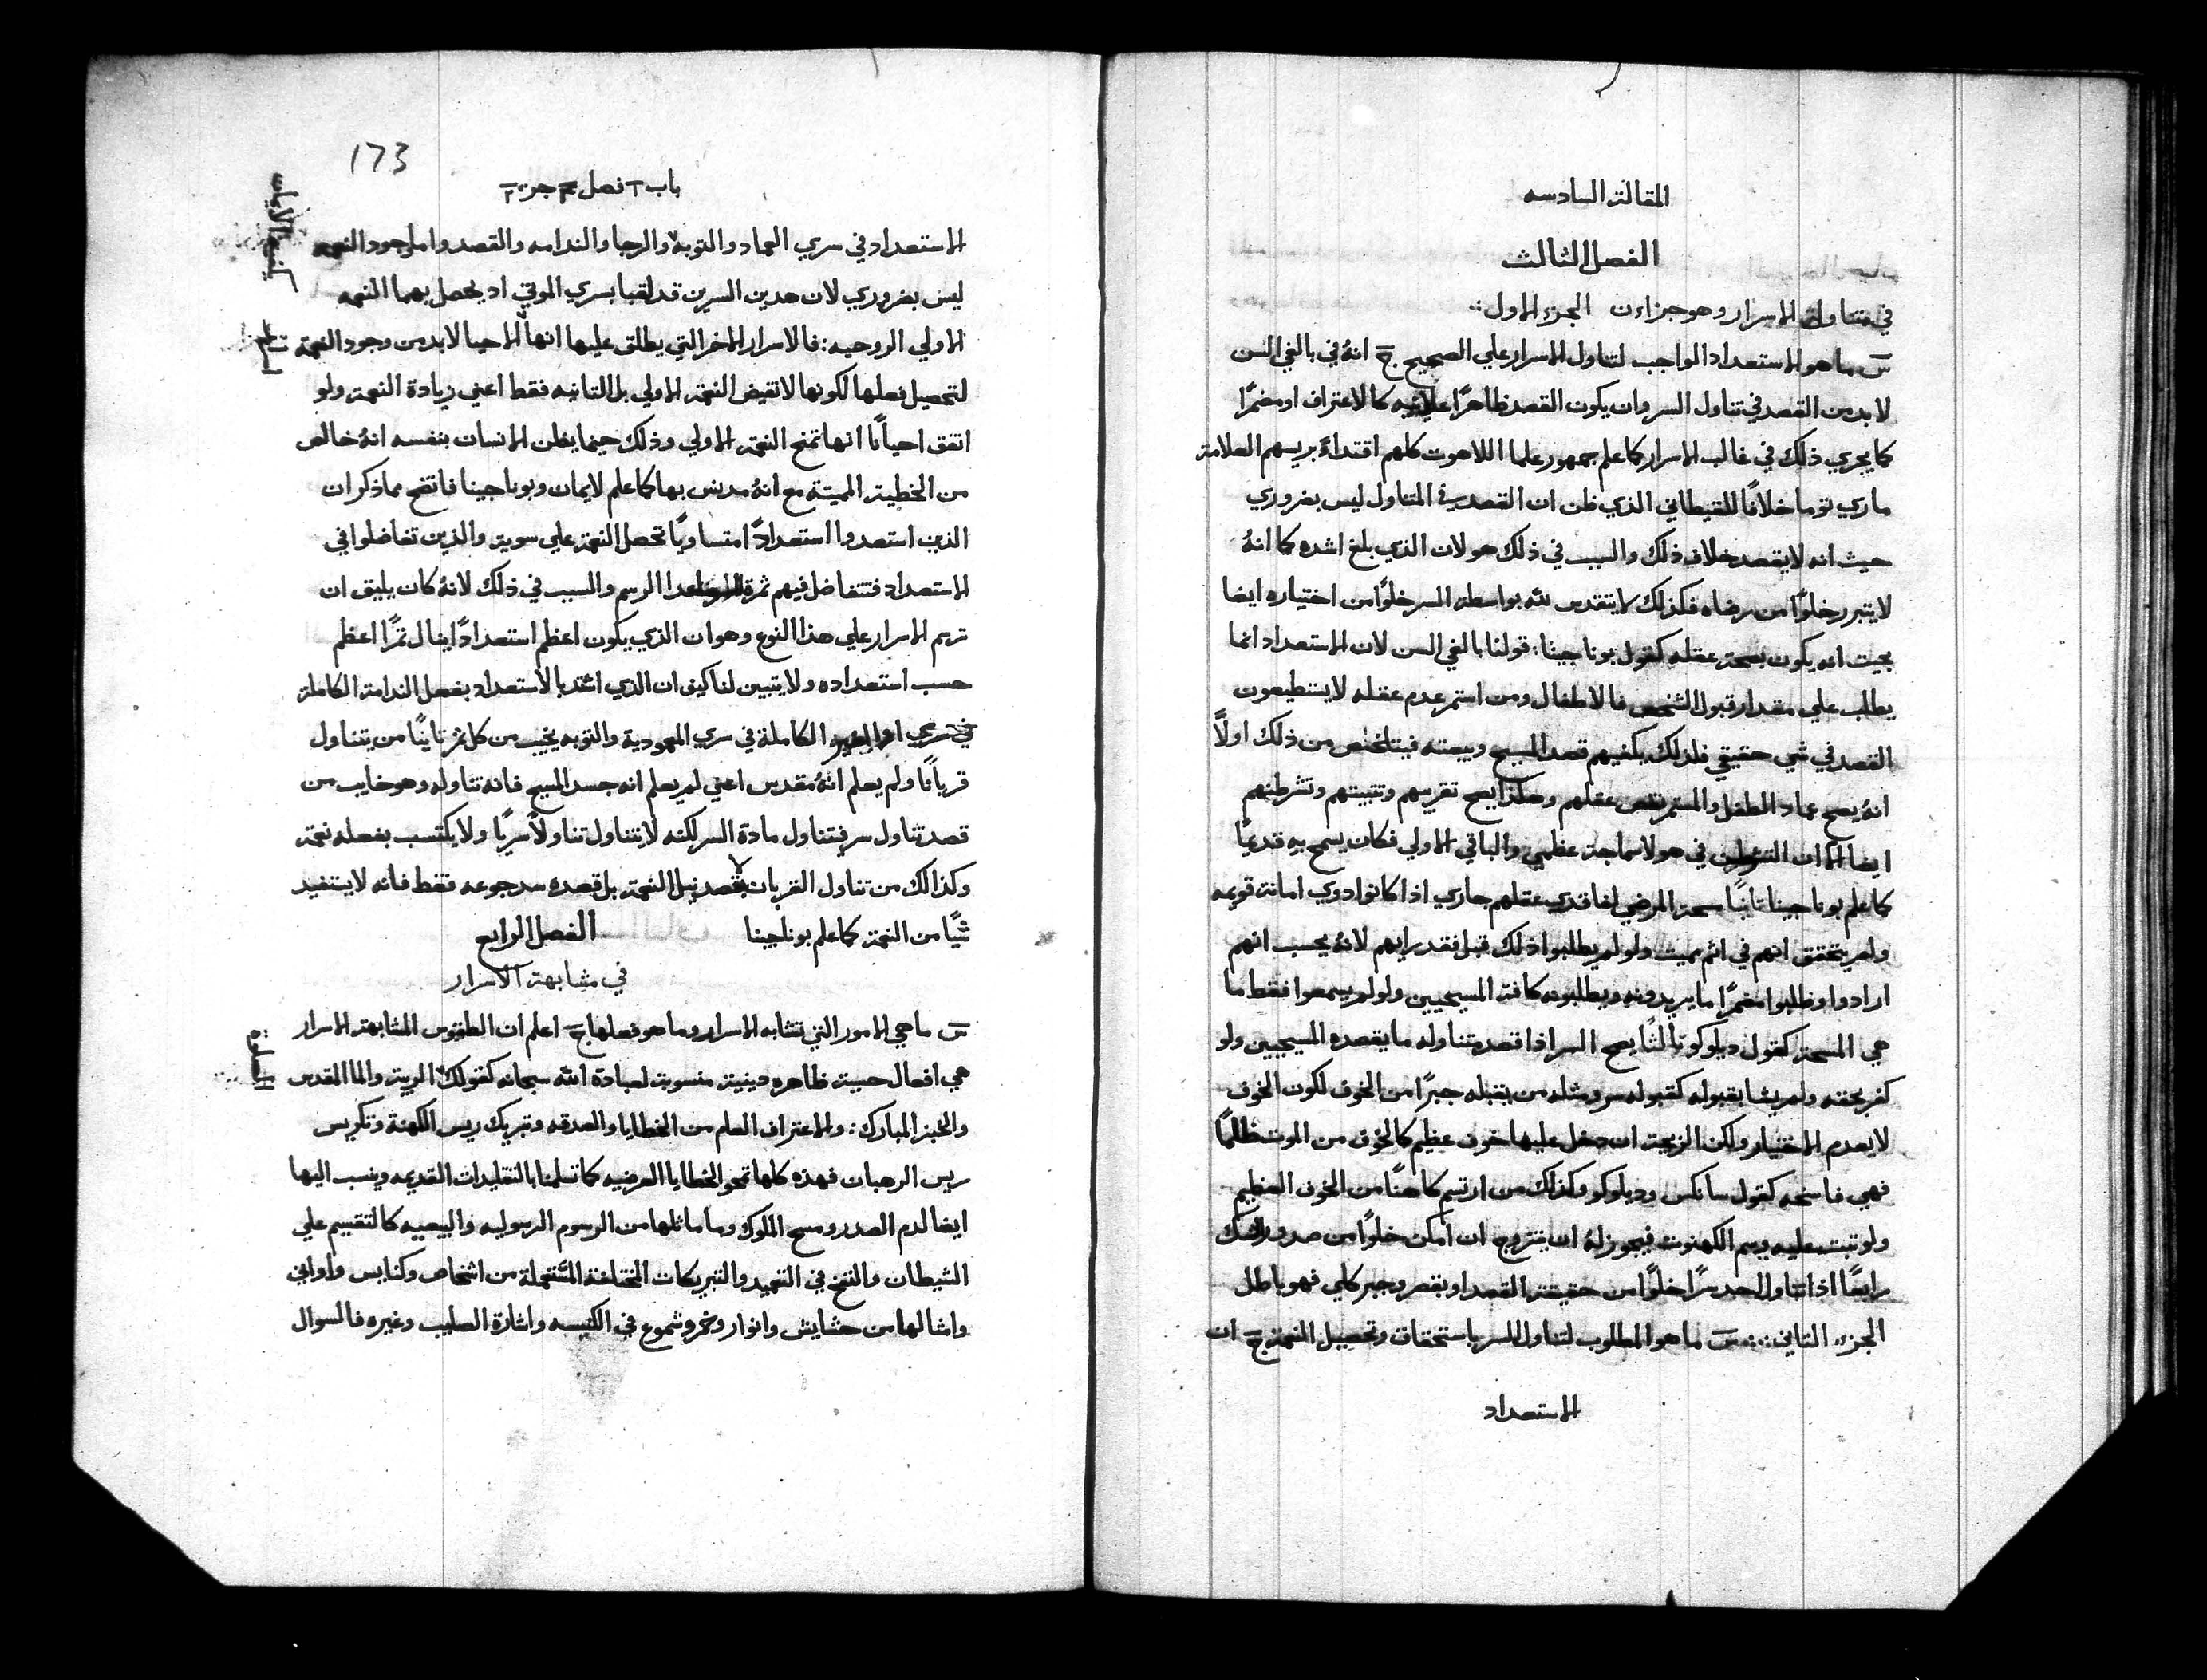 المقالة السادسه
الفصل الثالث
في متناولي الاسرار وهو جزاءن الجزء الاول :.
س ما هو الاستعداد الواجب لتناول الاسرار علي الصحيح ج انهُ في بالغي السن
لابد من القصد في تناول السر وان يكون القصد ظاهرًا علانيه كالاعتراف او مضمرًا
كما يجري ذلك في غالب الاسرار كما علم جمهور علما اللاهوت كلهم اقتداءً بريسهم العلامة
ماري توما خلافًا للقيطاني الذي ظن ان القصد في المتناول ليس بضروري
حيث انه لا يقصد خلاف ذلك والسبب في ذلك هو لان الذي بلغ اشده كما انهُ
لا يتبرر خلوًا من رضاه فكذلك لا يتقدس لله بواسطة السر خلوًا من اختياره ايضا
بحيث انه يكون بصحة عقله كقول بوناجينا : قولنا بالغي السن لان الاستعداد انما
يطلب علي مقدار قبول الشخص فالاطفال ومن استمر عدم عقله لا يستطيعون
القصد في شي حقيقي فلذلك يكفيهم قصد المسيح وبيعته فيتلخص من ذلك اولاً
انهُ يصح عماد الطفل والمستمر نقص عقلهم وهكذا يصح تقريبهم وتثبيتهم وتشرطنهم
ايضا الا ان في هولا سماجة عظمي والباقي الاولي فكان يسمح به قديمًا
كما علم بوناجينا ثانيًا مسحة المرضي لفاقدي عقلهم جاري اذا كانوا ذوي امانة قويمه
ولم يتحقق انهم في اثم مميت ولو لم يطلبوا ذلك قبل فقد رايهم لانهُ يحسب انهم
ارادوا وطلبوا مضمرًا ما يريدونه ويطلبونه كافة المسيحيين ولو لم يسمعوا فقط ما
هي المسحة كقول ديلوكو ثالثًا يصح السر اذا قصد متناوله ما يقصده المسيحيين ولو
كفر بحقه ولم يشا بقبوله كقبوله سر ومثله من يقبله جبرًا من الخوف لكون الخوف
لا يعدم الاختيار ولكن الزيجة ان دخل عليها خوف عظيم كالخوف من الموت ظالمًا
فهي فاسخه كقول سانكس وديلوكو وكذلك من ارتسم كاهنًا من الخوف العظيم
ولو تبت عليه وسم الكهنوت فيجوز لهُ ان يتزوج ان امكن خلوًا من صدور الشك
رابعًا اذا تناول احد سرًا خلوًا من حقيقة القصد او بقصر وجبر كلي فهو باطل
الجزء الثاني :.: س ما هو المطلوب لتناول السر باستحقاق وتحصيل النعمة ج ان
الاستعداد
173
باب ٦ فصل ٣ جزء ٢
الاستعداد في سري العماد والتوبه والرجا والندامه والقصد واما وجود النعمه
ليس بضروري لان هدين السرين قد لقبا بسري الموتي اد يحصل بهما النعمه
الاولي الروحيه : فالاسرار الاخر التي يطلق عليها انها الاحيا لابد من وجود النعمة
لتحصيل فعلها لكونها لا تفيض النعمة الاولي بل الثانيه فقط اعني زيادة النعمة ولو
اتفق احيانًا انها تمنح النعمة الاولي وذلك حينما يظن الانسان بنفسه انهُ خالص
من الخطية المميتة مع انهُ مدنس بها كما علم لايمان وبوناجينا فاتضح مما ذكر ان
الذين استعدوا استعدادًا متساويًا تحصل النعمة علي سوية والذين تفاضلوا في
الاستعداد فتتفاضل فيهم ثمرة الرسم والسبب في ذلك لانهُ كان يليق ان
ترسم الاسرار علي هذا النوع وهو ان الذي يكون اعظم استعدادًا ينال ثمرًا اعظم
حسب استعداده ولا يتبين لنا كيف ان الذي اشتد بالاستعداد بفعل الندامة الكاملة
الكاملة في سري المعمودية والتوبه يخيب من كل ثمر ثانيًا من يتناول
قربانًا ولم يعلم انهُ مقدس اعني لم يعلم انه جسد المسيح فانه تناوله وهو خايب من
قصد تناول سر فيتناول مادة السر لكنه لا يتناول تناولاً سريًا ولا يكتسب بفعله نعمة
وكذالك من تناول القربان لا بقصد نيل النعمة بل قصده سد جوعه فقط فانه لا يستفيد
شيًا من النعمة كما علم بوناجينا الفصل الرابع
في مشابهة الاسرار
س ما هي الامور التي تشابه الاسرار وما هو فعلها ج اعلم ان الطقوس المشابهة الاسرار
هي افعال حسية ظاهره دينية منسوبة لعبادة الله سبحانه كقولك الربية والما المقدس
والخبز المبارك : والاعتراف العام من الخطايا والصدقه وتبريك ريس الكهنة وتكريس
ريس الرهبان فهذه كلها تمحو الخطايا العرضيه كما تسلمنا بالتقليدات القديمه وينسب اليها
ايضا لدم الصدر ومسح الملوك وما ماثلها من الرسوم الرسوليه والبيعيه كالتقسيم علي
الشيطان والنفخ في التعميد والتبريكات المختلفة المستعملة من اشخاص وكنايس واواني
وامثالها من حشايش وانوار وخمر وشموع في الكنيسه واشارة الصليب وغيره فالسوال